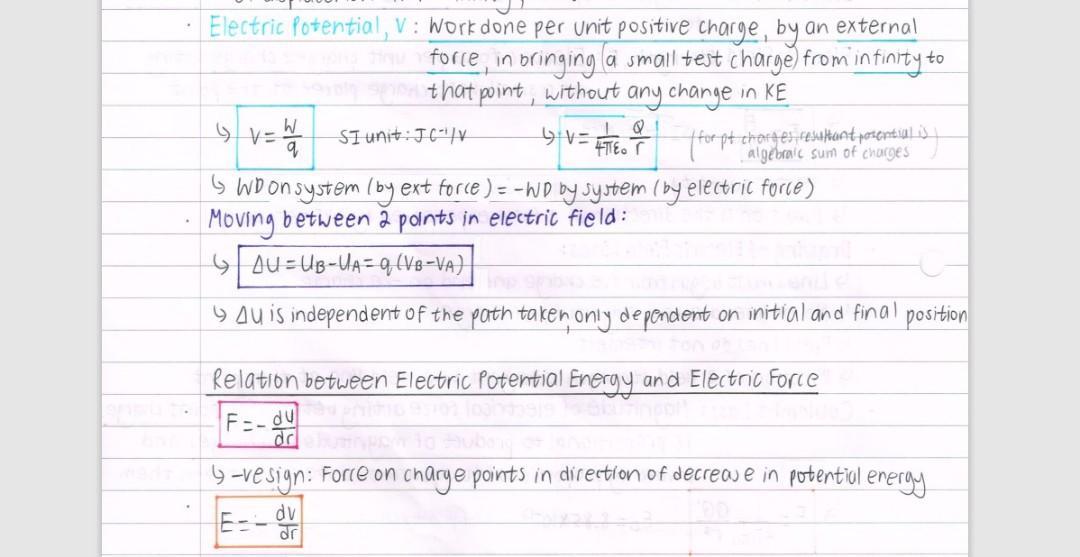 · Electric Potential, V : Work done per unit positive charge, by an external
force, in bringing (a small test charge) from infinity to
that point, without any change in KE
↳ V = W/q SI unit: JC⁻¹/V ↳ V = 1/4πε₀ Q/r (for pt charges, resultant potential is
algebraic sum of charges)
↳ WD on system (by ext force) = -WD by system (by electric force)
· Moving between 2 points in electric field:
↳ ΔU = UB-UA = q(VB-VA)
↳ ΔU is independent of the path taken, only dependent on initial and final position
Relation between Electric Potential Energy and Electric Force
· F = - dU/dr
↳ -ve sign: Force on charge points in direction of decrease in potential energy
· E = - dV/dr